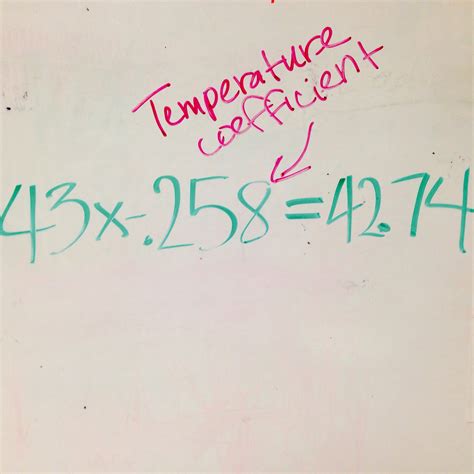 Temperature
coefficient
43x-.258=42.74